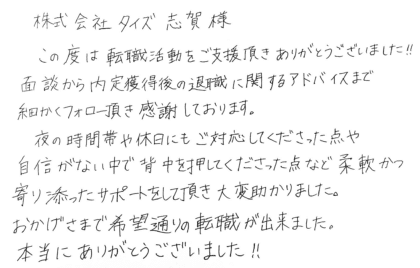 株式会社タイズ 志賀様
この度は転職活動をご支援頂きありがとうございました!!
面談から内定獲得後の退職に関するアドバイスまで
細かくフォロー頂き感謝しております。
夜の時間帯や休日にもご対応してくださった点や
自信がない中で背中を押してくださった点など柔軟かつ
寄り添ったサポートをして頂き大変助かりました。
おかげさまで希望通りの転職が出来ました。
本当にありがとうございました!!